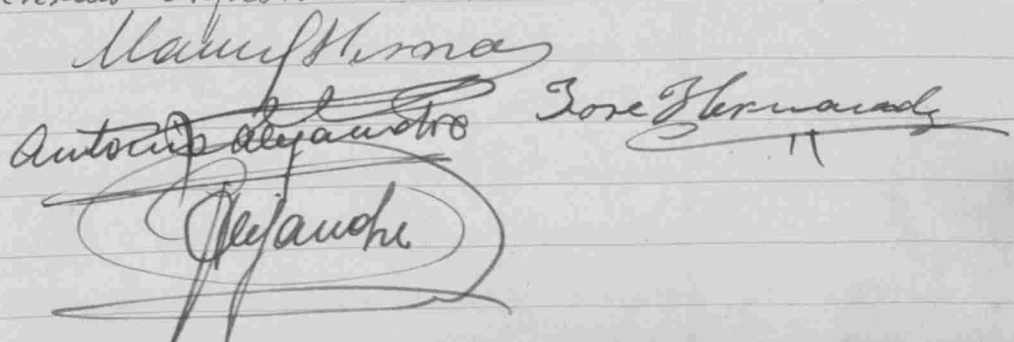 Manuel Hernaz
Antonio Alejandro
Jose Hernandz
Alejandre